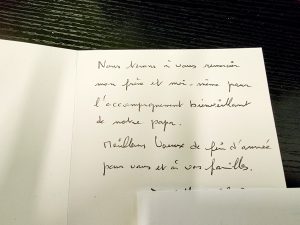 Nous tenons à vous remercier
mon frère et moi-même pour
l'accompagnement bienveillant
de notre papa.
Meilleurs Voeux de fin d'année
pour vous et à vos familles.